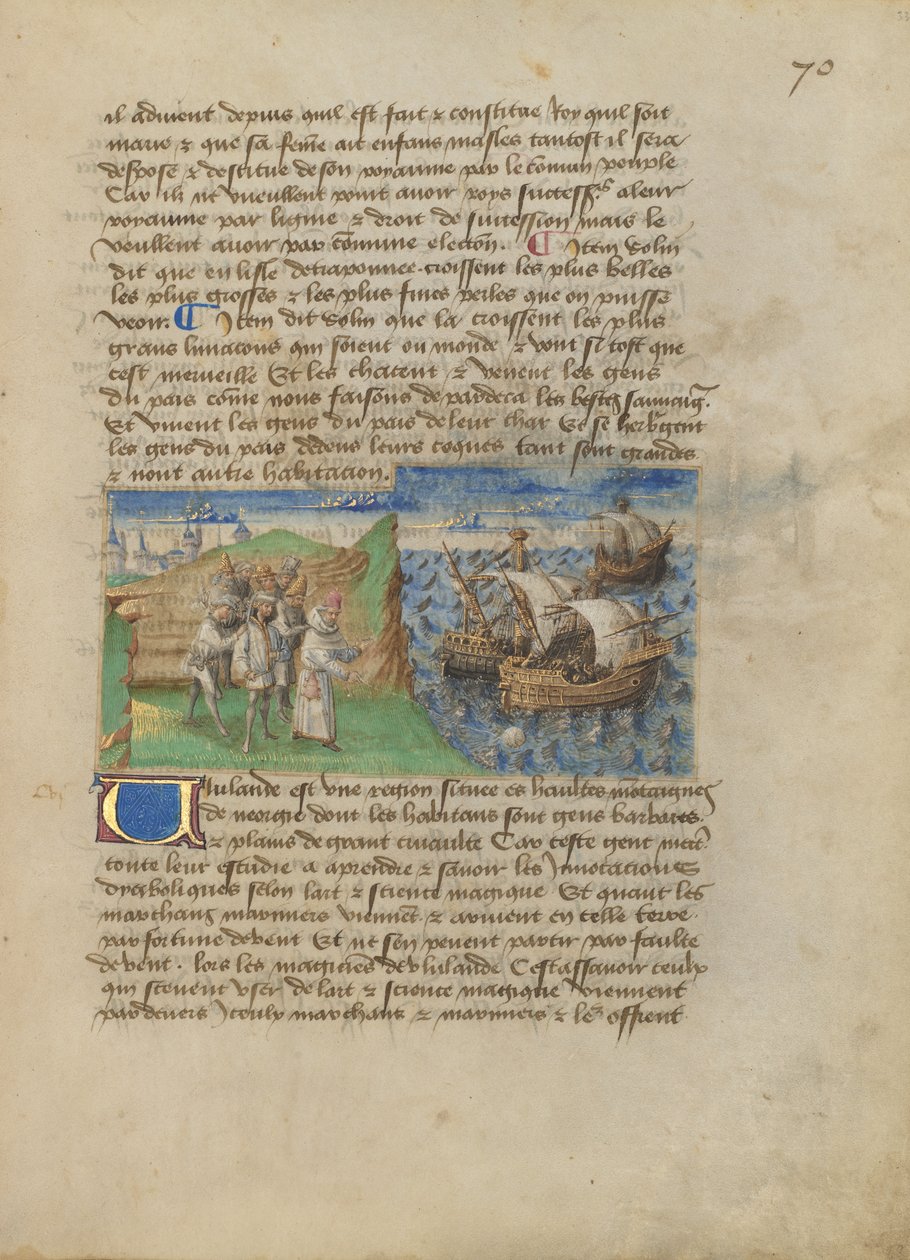 70
il advient depuis quil est fait & constitue Roy quil soit
marie & que sa feme ait enfans masles tantost il sera
despose & destitue de son royaume par le comun peuple
Car ilz ne vueullent point avoir roys success.rs a leur
royaume par lignie & droit de succession mais le
veullent avoir par comune election. ¶ Item Solin
dit que en lisle de traponnee croissent les plus belles
les plus grosses & les plus fines perles que on puisse
veoir. ¶ Item dit Solin que la croissent les plus
grans limacons qui soient ou monde & vont si tost que
cest merveille Et les chacent & venent les gens
du pais come nous faisons de pardeca les bestes sauuaig.
Et viuent les gens du pais de leur char Et se herbgent
les gens du pais dedens leurs coques tant sont grandes
& nont autre habitacion.
Uulande est vne region situee es haultes montaignes
de neorgie dont les habitans sont gens barbares.
& plains de grant cruaulte Car ceste gent mett
toute leur estudie a aprendre & savoir les Innotacions
dyaboliques selon lart & science magique Et quant les
marchans mariniers viennent & arivent en celle terre
par fortune de vent Et ne sen peuent partir par faulte
de vent. lors les magiciens de vlulande Cestassavoir ceulx
qui scevent vser de lart & science magique viennent
par devers Iceulx marchans & mariniers & les offrent